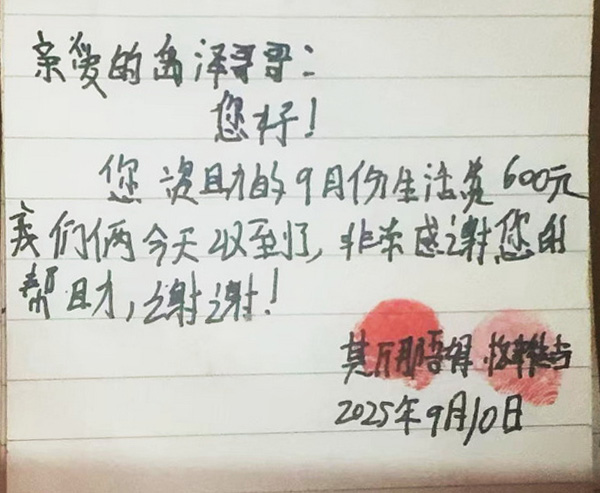 亲爱的禹泽哥哥：
您好！
您资助的9月份生活费600元
我们俩今天收到了，非常感谢您的
帮助，谢谢！
莫万那吾得
2025年9月10日